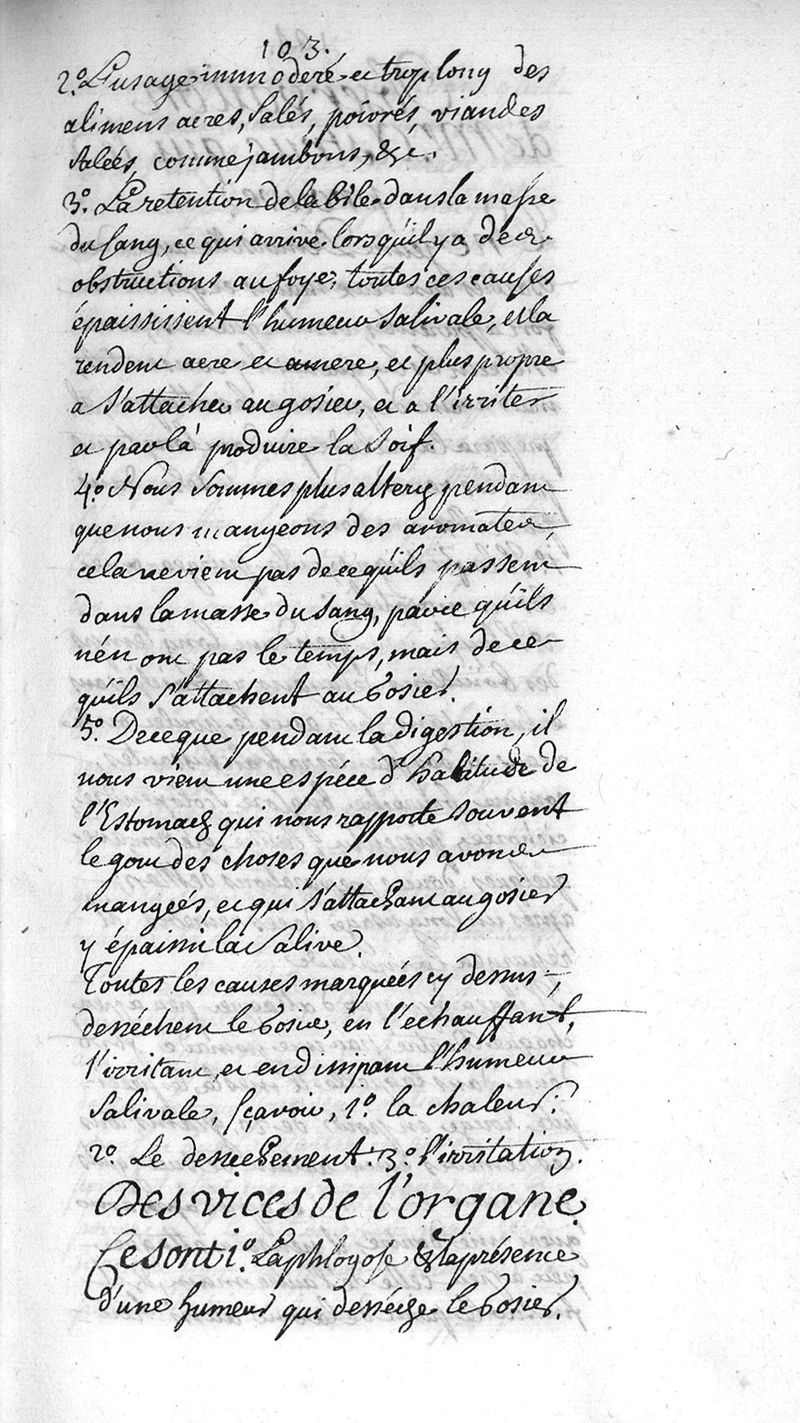 103.
2.º L'usage immoderé et trop long des
alimens acres, salés, poivrés, viandes
salées, comme jambons, &c.
3.º La retention de la bile dans la masse
du sang, ce qui arrive lorsqu'il y a des
obstructions au foye, toutes ces causes
épaississent l'humeur salivale, et la
rendent acre et amere, et plus propre
a s'attacher au gosier, et a l'irriter
et par là produire la soif.
4.º Nous sommes plus alterez pendant
que nous mangeons des aromates,
cela ne vient pas de ce qu'ils passent
dans la masse du sang, parce qu'ils
n'en ont pas le temps, mais de ce
qu'ils s'attachent au Gosier.
5.º De ce que pendant la digestion, il
nous vient une espéce d'halitude de
l'Estomach qui nous rapporte souvent
le gout des choses que nous avons
mangées, et qui s'attachant au gosier
y épaissit la salive.
Toutes les causes marquées cy dessus,
desséchent le Gosier, en l'echauffant,
l'irritant, et en dissipant l'humeur
salivale, sçavoir, 1.º la chaleur.
2.º Le dessechement. 3.º l'irritation.
Des vices de l'organe.
Ce sont 1.º La phlogose & la présence
d'une humeur qui desséche le Gosier.